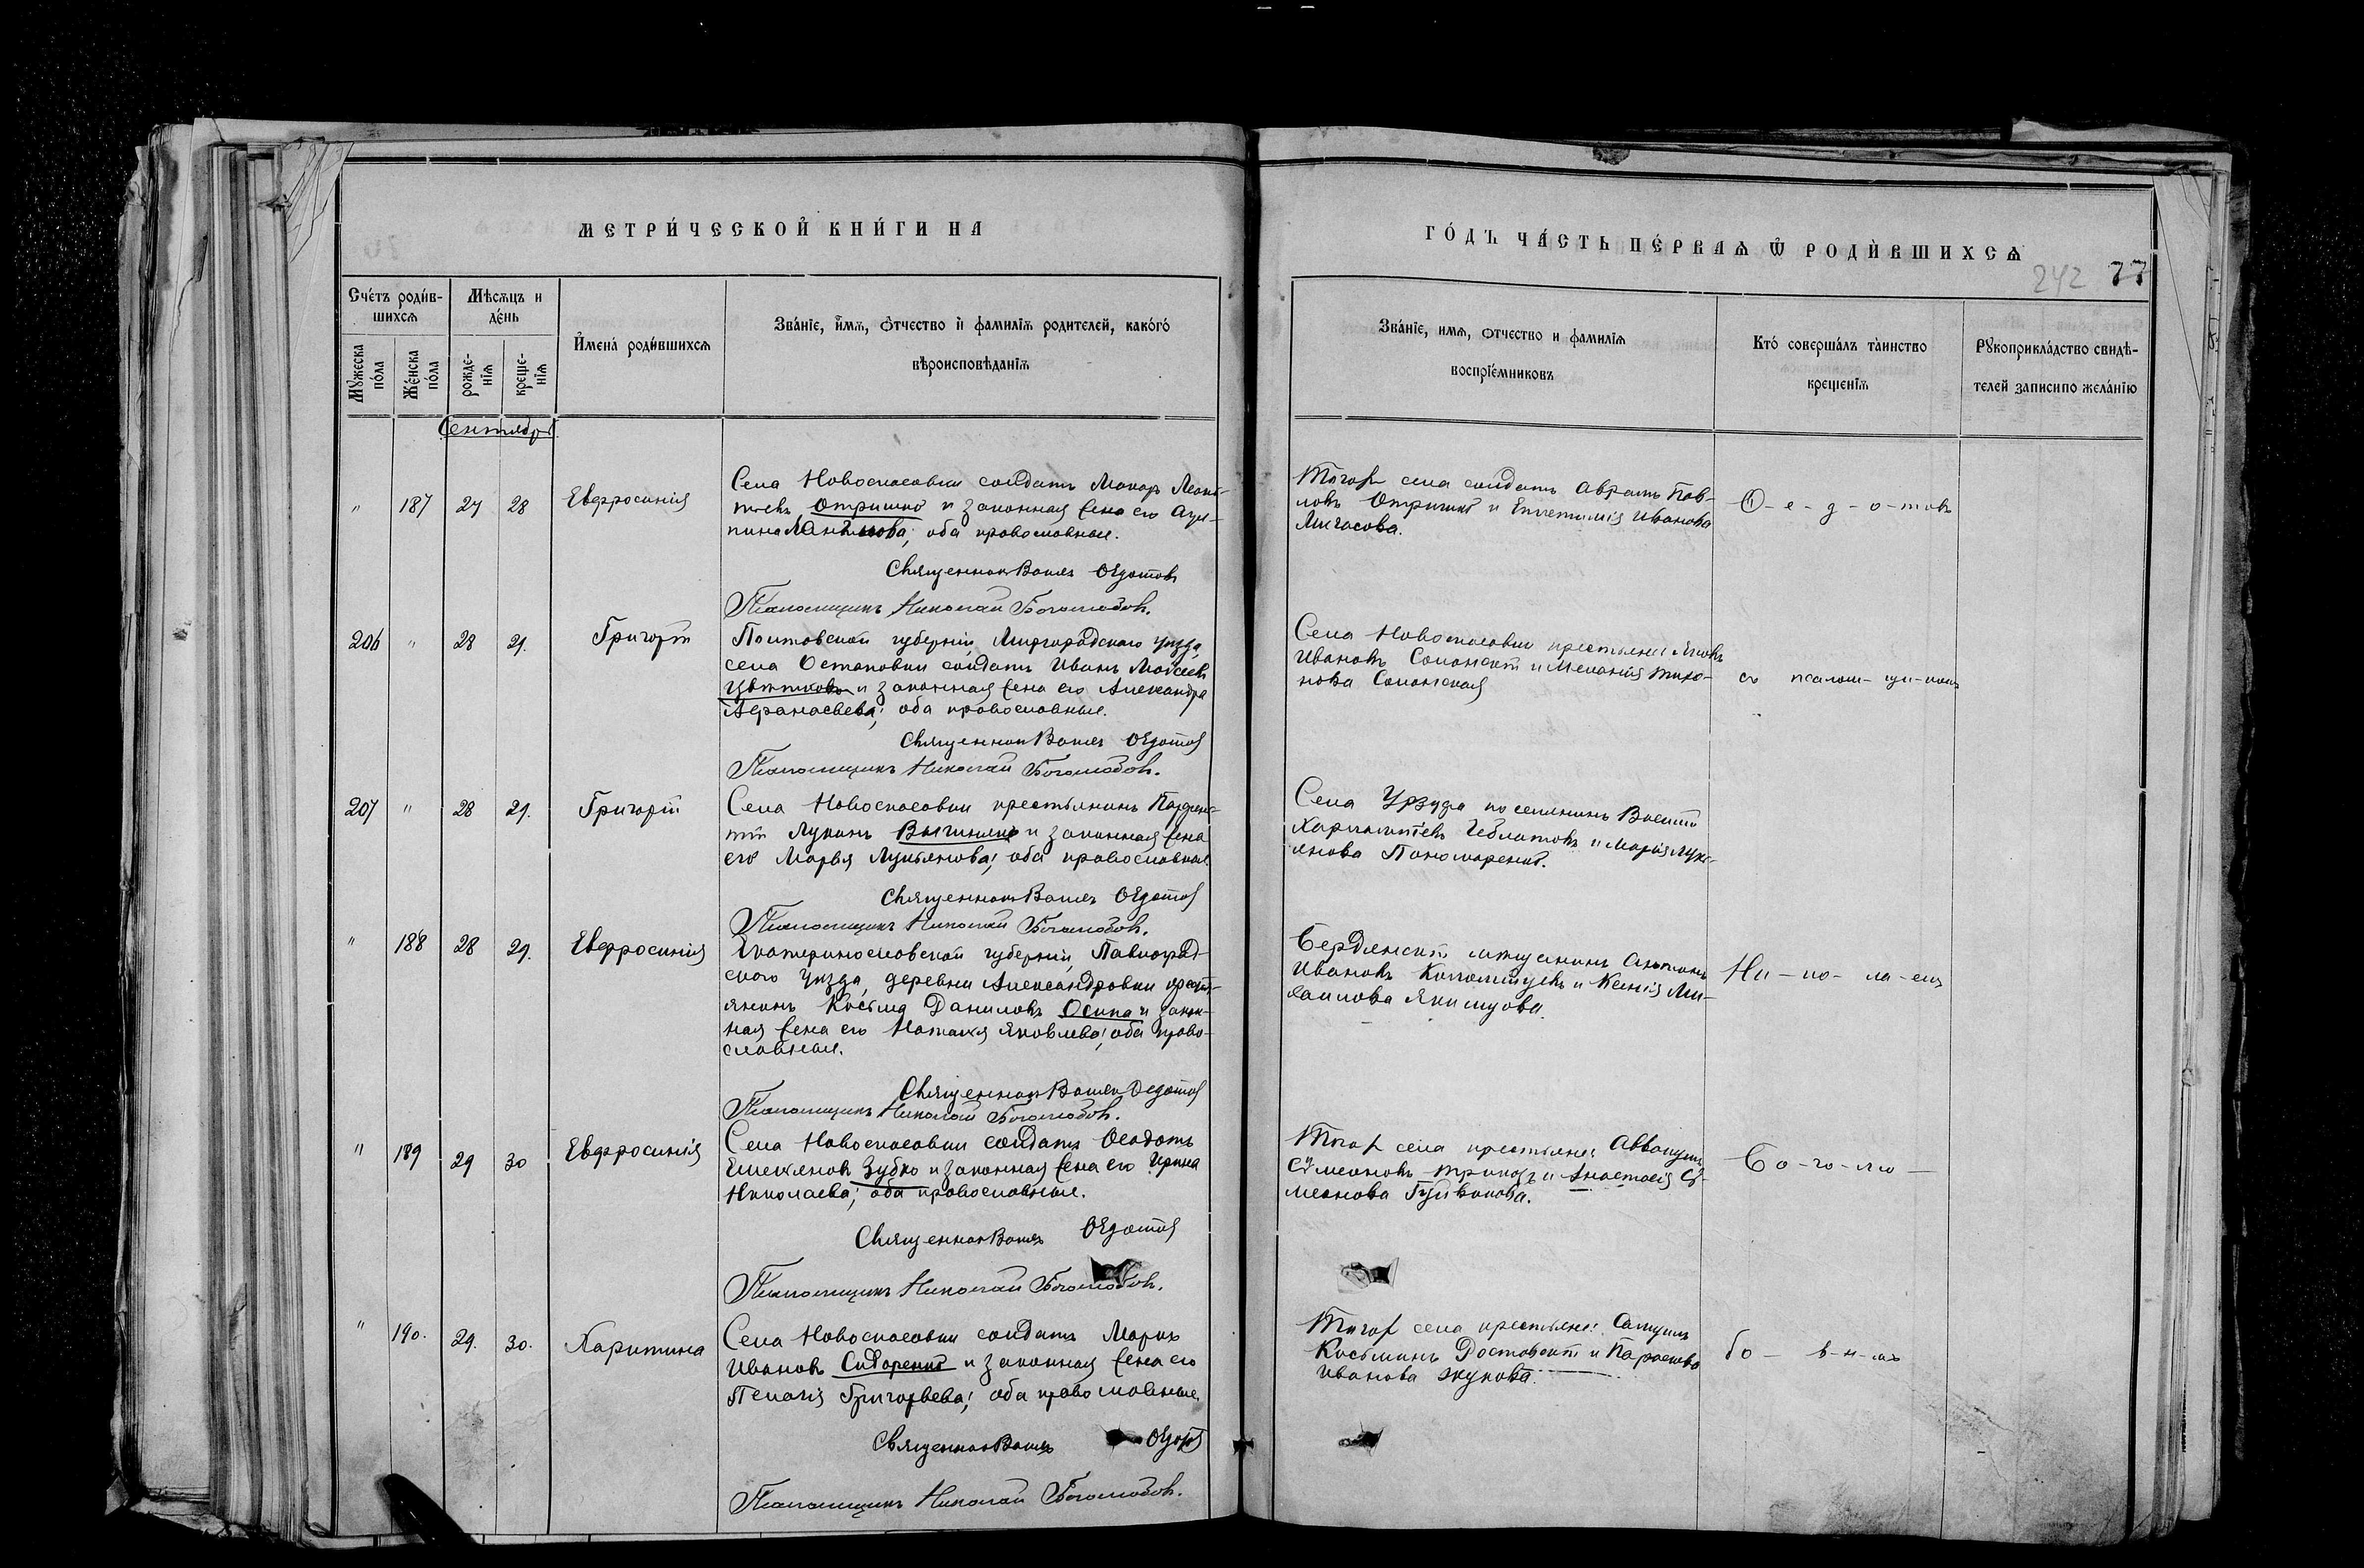 МЕТРИЧЕСКОЙ КНИГИ НА
ГОДЪ ЧАСТЬ ПЕРВАѦ Ѿ РОДИВШИХСѦ
242 77
Счетъ родив-
шихсѧ
Мѣсѧцъ и
день
Мужеска
пола
Женска
пола
рожде-
нїѧ
креще-
нїѧ
Имена родившихсѧ
Званїе, имѧ, отчество и фамилїѧ родителей, какого
вѣроисповѣданїѧ
Званїе, имѧ, отчество и фамилїѧ
воспрїемниковъ
Кто совершалъ таинство
крещенїѧ
Рукоприкладство свидѣ-
телей записи по желанїю
Сентябрь
" 187 27 28 Евфросинія
Села Новоспасовки солдатъ Макаръ Леон-
тіевъ Отришко и законная жена его Агри-
пина; оба православные.
Священникъ Василій Ѳедотовъ
Псаломщикъ Николай Боголюбовъ.
Того же села солдатъ Авраамъ Пав-
ловъ Отришко и Иванова
Ѳ-е-д-о-товъ
206 " 28 29. Григорій
Полтавской губерніи, Миргородскаго уѣзда,
села Остаповки солдатъ Иванъ Моѵсеевъ
и законная жена его Александра
Афанасьева; оба православные.
Священникъ Василій Ѳедотовъ
Псаломщикъ Николай Боголюбовъ.
Села Новоспасовки крестьяне: Яковъ
Ивановъ и Меланія Тихо-
нова
съ псалом-щи-комъ
207 " 28 29. Григорій
Села Новоспасовки крестьянинъ Парфен-
тій Лукинъ и законная жена
его Марья Лукьянова; оба православные.
Священникъ Василій Ѳедотовъ
Псаломщикъ Николай Боголюбовъ.
Села Урзуфа поселянинъ Василій
Харлампіевъ и Марія Лукь-
янова Пономаренко.
" 188 28 29. Евфросинія
Екатеринославской губерніи, Павлоград-
скаго уѣзда, деревни Александровки кресть-
янинъ Косьма Даниловъ Осипа и закон-
ная жена его Наталія Яковлева; оба право-
славные.
Священникъ Василій Ѳедотовъ
Псаломщикъ Николай Боголюбовъ.
Бердянскій мѣщанинъ Антонъ
Ивановъ Коломійцевъ и Ксенія Ми-
хаилова Якимцова.
Ни-ко-ла-емъ
" 189 29 30 Евфросинія
Села Новоспасовки солдатъ Ѳеодотъ
Емельяновъ Зубко и законная жена его Ирина
Николаева; оба православные.
Священникъ Василій Ѳедотовъ
Псаломщикъ Николай Боголюбовъ.
Того же села крестьяне: Аввакумъ
Сѵмеоновъ и Анастасія Сѵ-
меонова
Бо-го-лю-
" 190. 29. 30. Харитина
Села Новоспасовки солдатъ Маркъ
Ивановъ Сидоренко и законная жена его
Пелагія Григорьева; оба православные.
Священникъ Василій Ѳедотовъ
Псаломщикъ Николай Боголюбовъ.
Того же села крестьяне: Самуилъ
Косьминъ и Параскева
Иванова Жукова.
бо-в-ы-мъ